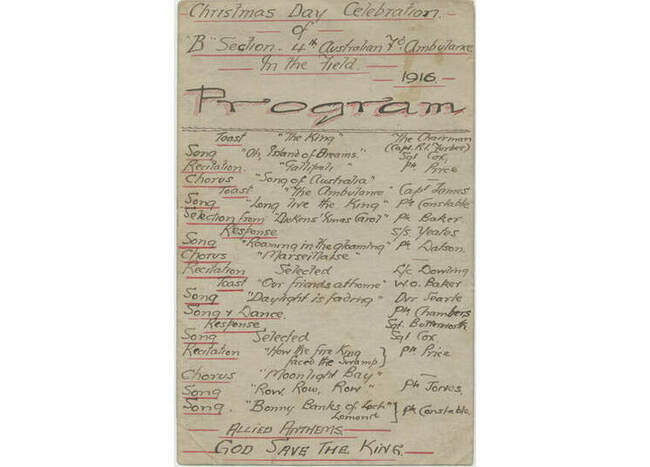 Christmas Day Celebration.
of
"B" Section - 4th Australian Fd. Ambulance
In the Field.
1916.
Program
Toast "The King" The Chairman
(Capt. R.I. Furber)
Song "Oh, Island of Dreams." Sgt Cox.
Recitation. "Gallipoli" Pte Price
Chorus "Song of Australia"
Toast "The Ambulance" Capt James
Song "Long live the King" Pte Constable
Selection from "Dickens' Xmas Carol" Pte Baker
Response S/S Yeates
Song "Roaming in the gloaming" Pte Dalson.
Chorus "Marseillaise" —
Recitation Selected L/c Dowling
Toast "Our friends at home" W.O. Baker
Song "Daylight is fading" Dvr Searle
Song & Dance. Pte Chambers
Response Sgt. Butterworth
Song Selected Sgt Cox
Recitation "How the Fire King
faced the Swamp" } Pte Price
Chorus "Moonlight Bay" —
Song "Row, Row, Row" Pte Jones.
Song. "Bonny Banks of Loch
Lomond" } Pte Constable.
Allied Anthems.
God Save The King.